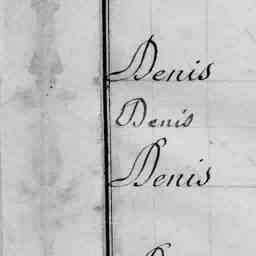 Denis
Denis
Denis